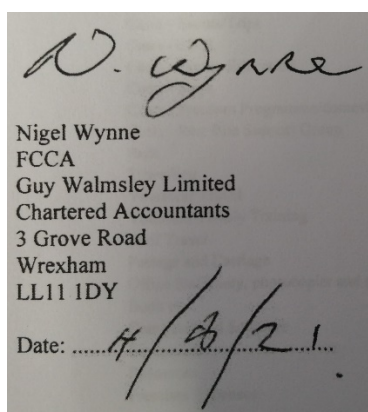 N. Wynne
Nigel Wynne
FCCA
Guy Walmsley Limited
Chartered Accountants
3 Grove Road
Wrexham
LL11 1DY
Date: ......4/8/21......